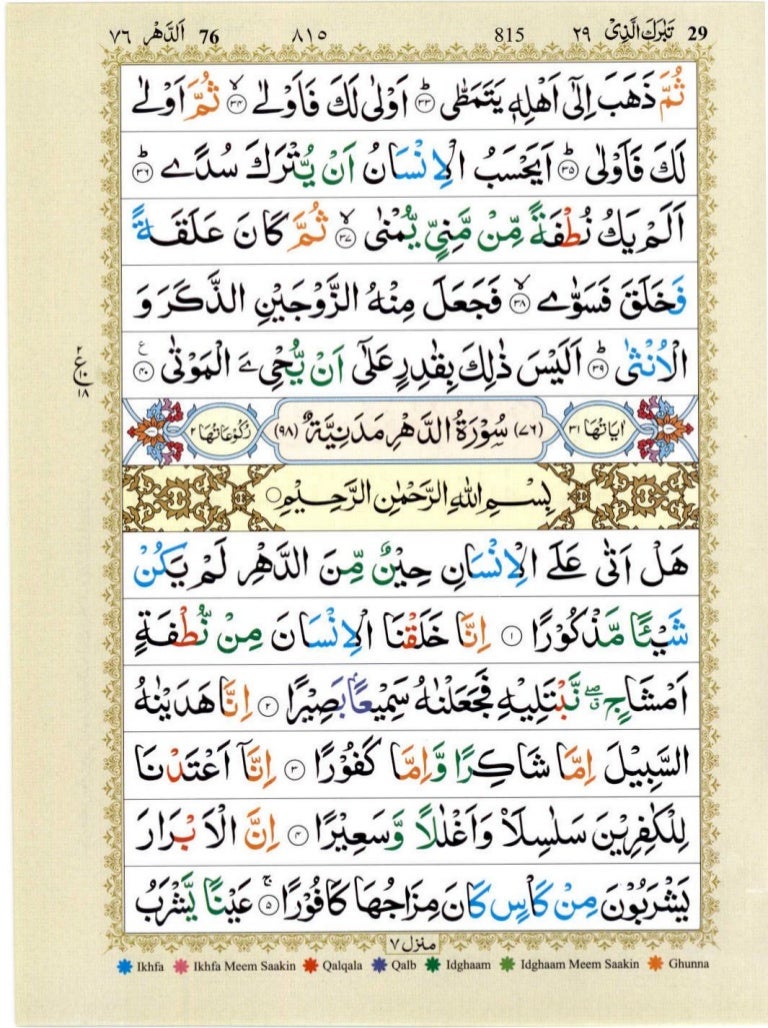 29 تَبٰرَكَ الَّذِیْ ٢٩ 815 ٨١٥ 76 اَلدَّهْر ٧٦
ثُمَّ ذَهَبَ اِلٰۤى اَهْلِهٖ یَتَمَطّٰى ؕ ٣٣ اَوْلٰى لَكَ فَاَوْلٰى ۙ ٣٤ ثُمَّ اَوْلٰى
لَكَ فَاَوْلٰى ؕ ٣٥ اَیَحْسَبُ الْاِنْسَانُ اَنْ یُّتْرَكَ سُدًى ؕ ٣٦
اَلَمْ یَكُ نُطْفَةً مِّنْ مَّنِیٍّ یُّمْنٰى ۙ ٣٧ ثُمَّ كَانَ عَلَقَةً
فَخَلَقَ فَسَوّٰى ۙ ٣٨ فَجَعَلَ مِنْهُ الزَّوْجَیْنِ الذَّكَرَ وَ
الْاُنْثٰى ؕ ٣٩ اَلَیْسَ ذٰلِكَ بِقٰدِرٍ عَلٰۤى اَنْ یُّحْیِ ےَ الْمَوْتٰى ۠ ٤٠
٢ ع ١٠ ١٨
اٰیَاتُهَا ٣١ (٧٦) سُوْرَةُ الدَّهْرِ مَدَنِیَّةٌ (٩٨) رُكُوْعَاتُهَا ٢
بِسْمِ اللهِ الرَّحْمٰنِ الرَّحِیْمِ
هَلْ اَتٰى عَلَى الْاِنْسَانِ حِیْنٌ مِّنَ الدَّهْرِ لَمْ یَكُنْ
شَیْـًٔا مَّذْكُوْرًا ١ اِنَّا خَلَقْنَا الْاِنْسَانَ مِنْ نُّطْفَةٍ
اَمْشَاجٍ ۖۗ نَّبْتَلِیْهِ فَجَعَلْنٰهُ سَمِیْعًۢا بَصِیْرًا ٢ اِنَّا هَدَیْنٰهُ
السَّبِیْلَ اِمَّا شَاكِرًا وَّاِمَّا كَفُوْرًا ٣ اِنَّاۤ اَعْتَدْنَا
لِلْكٰفِرِیْنَ سَلٰسِلَاۡ وَاَغْلٰلًا وَّسَعِیْرًا ٤ اِنَّ الْاَبْرَارَ
یَشْرَبُوْنَ مِنْ كَاْسٍ كَانَ مِزَاجُهَا كَافُوْرًا ۚ ٥ عَیْنًا یَّشْرَبُ
منزل ٧
Ikhfa Ikhfa Meem Saakin Qalqala Qalb Idghaam Idghaam Meem Saakin Ghunna